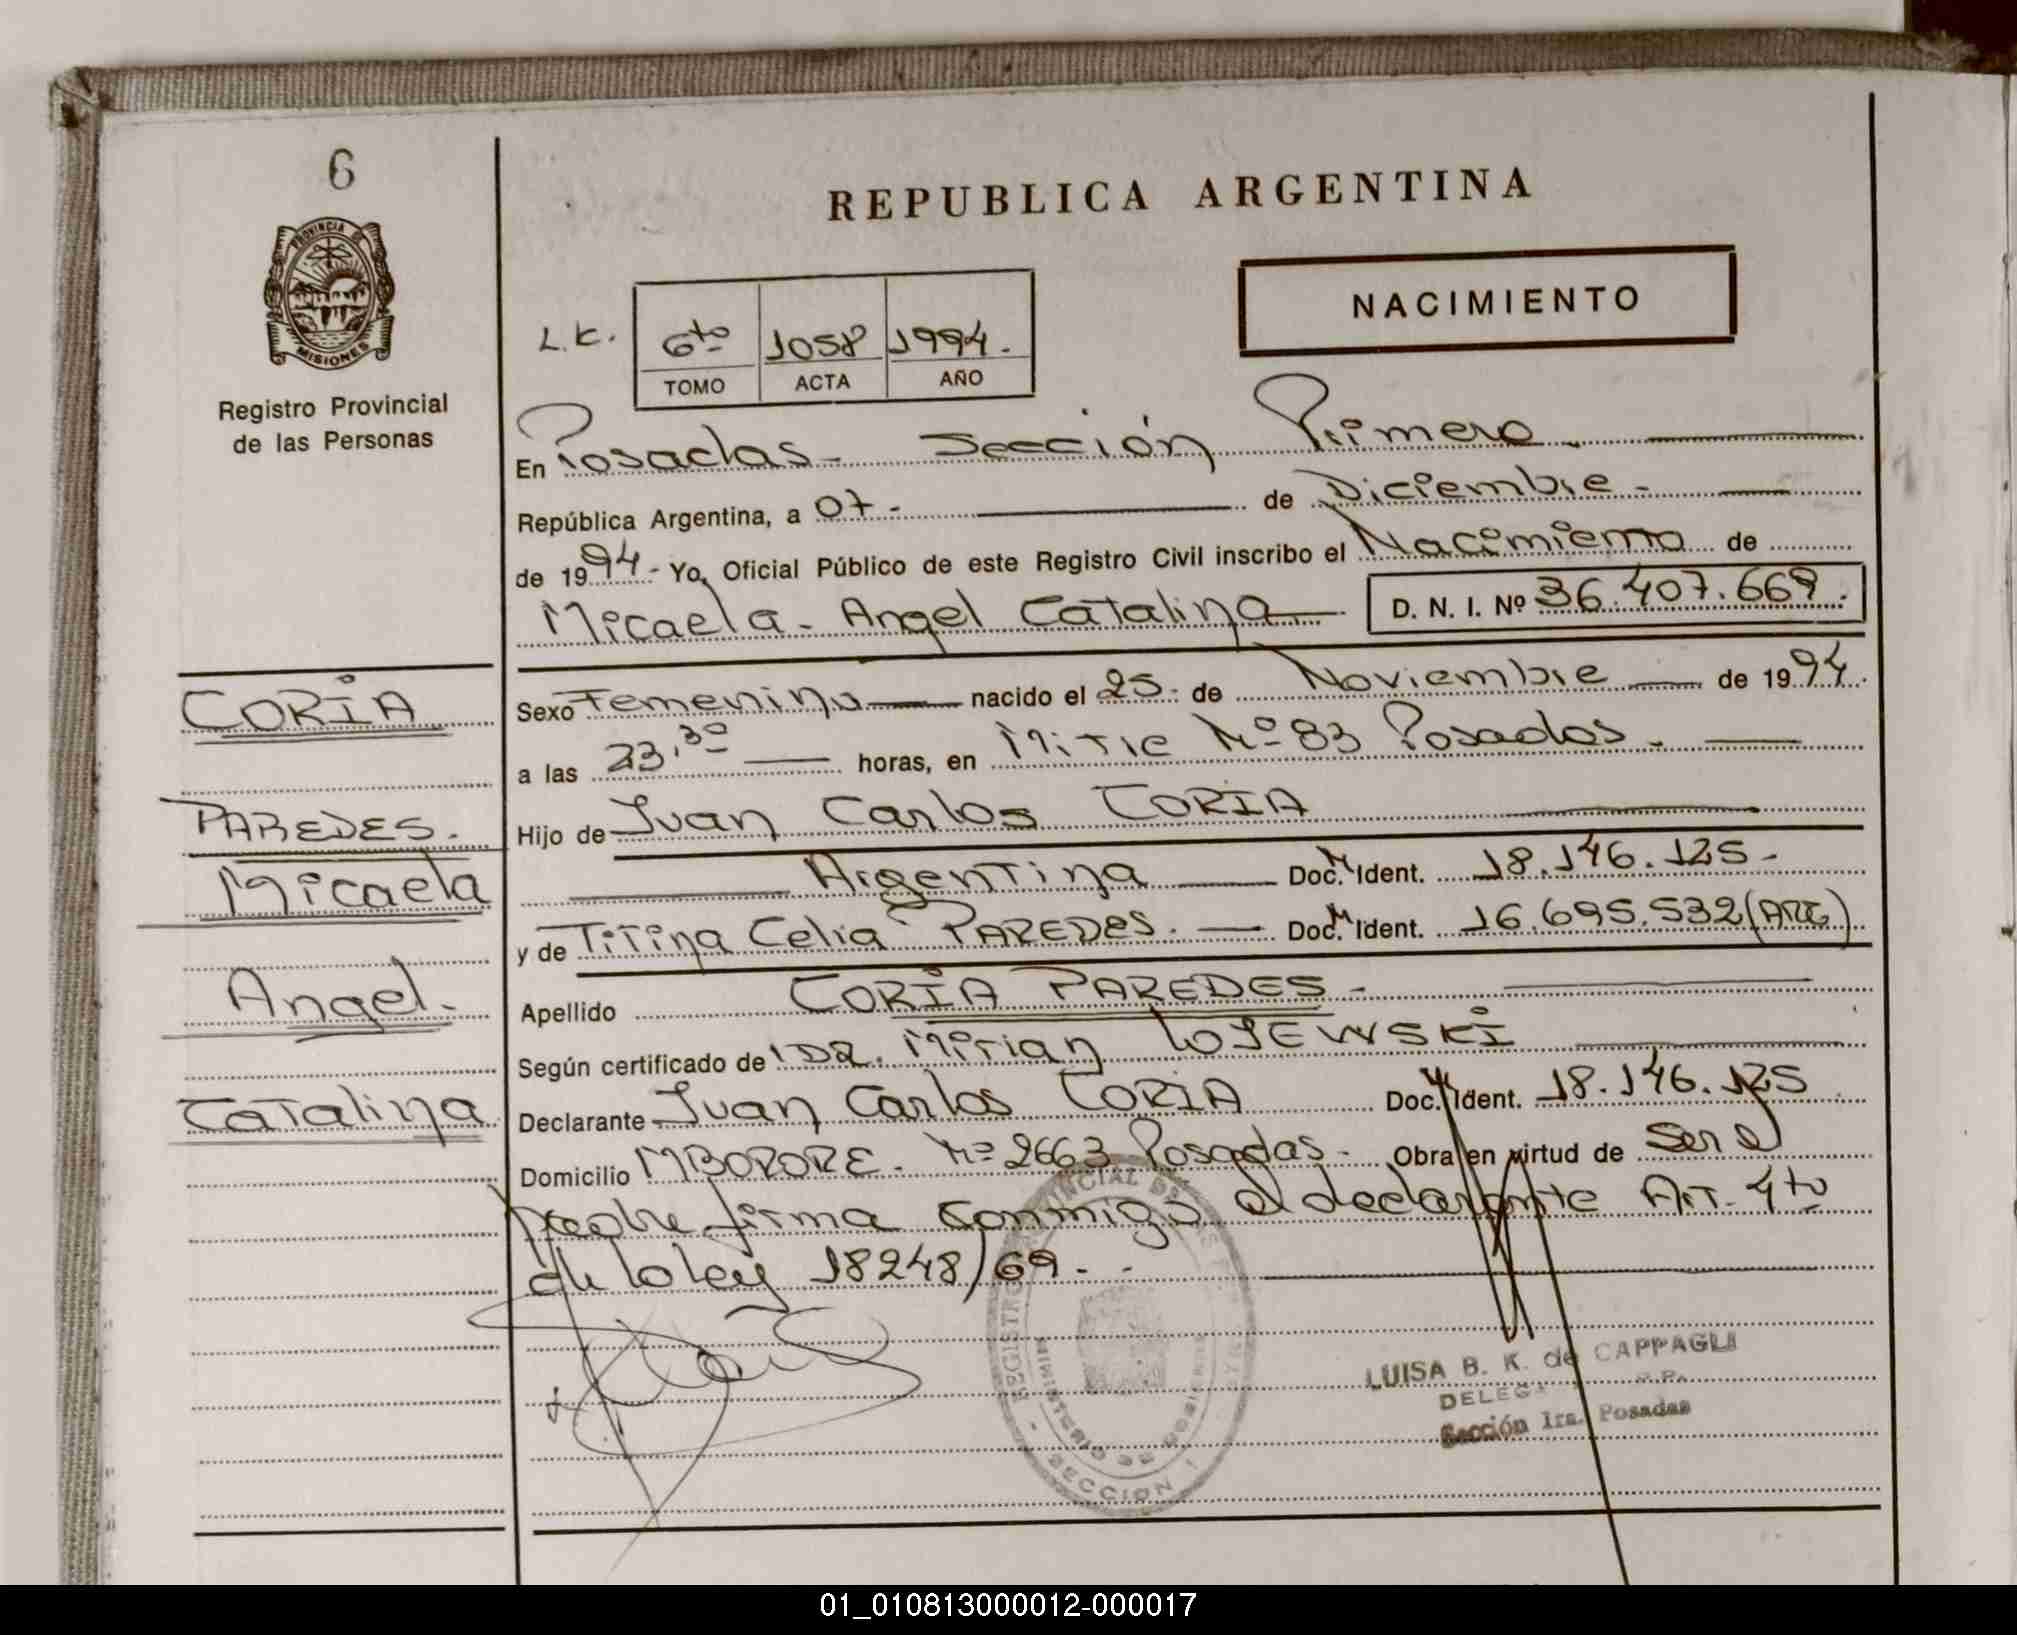 6
PROVINCIA DE
MISIONES
Registro Provincial
de las Personas
REPUBLICA ARGENTINA
NACIMIENTO
L.K.
6to 1058 1994.
TOMO ACTA AÑO
En Posadas - Sección Primera
República Argentina, a 07 - de Diciembre -
de 1994 - Yo, Oficial Público de este Registro Civil inscribo el Nacimiento de
Micaela - Angel Catalina D. N. I. Nº 36.407.669.
CORIA
PAREDES.
Micaela
Angel.
Catalina
Sexo Femenino nacido el 25 - de Noviembre de 1994.
a las 23,30 horas, en Mitre Nº 83 Posadas.
Hijo de Juan Carlos CORIA
Argentina Doc. M Ident. 18.146.125 -
y de Titina Celia PAREDES. Doc. M Ident. 16.695.532 (ARG)
Apellido CORIA PAREDES -
Según certificado de DR. Mirian WOJEWSKI
Declarante Juan Carlos CORIA Doc. Ident. 18.146.125
Domicilio MBORORE - Nº 2663 Posadas - Obra en virtud de Ser el
Padre firma conmigo el declarante Art. 4to
de la ley 18248/69 - -
LUISA B. K. de CAPPAGLI
Sección 1ra. Posadas
SECCION 1
01_010813000012-000017